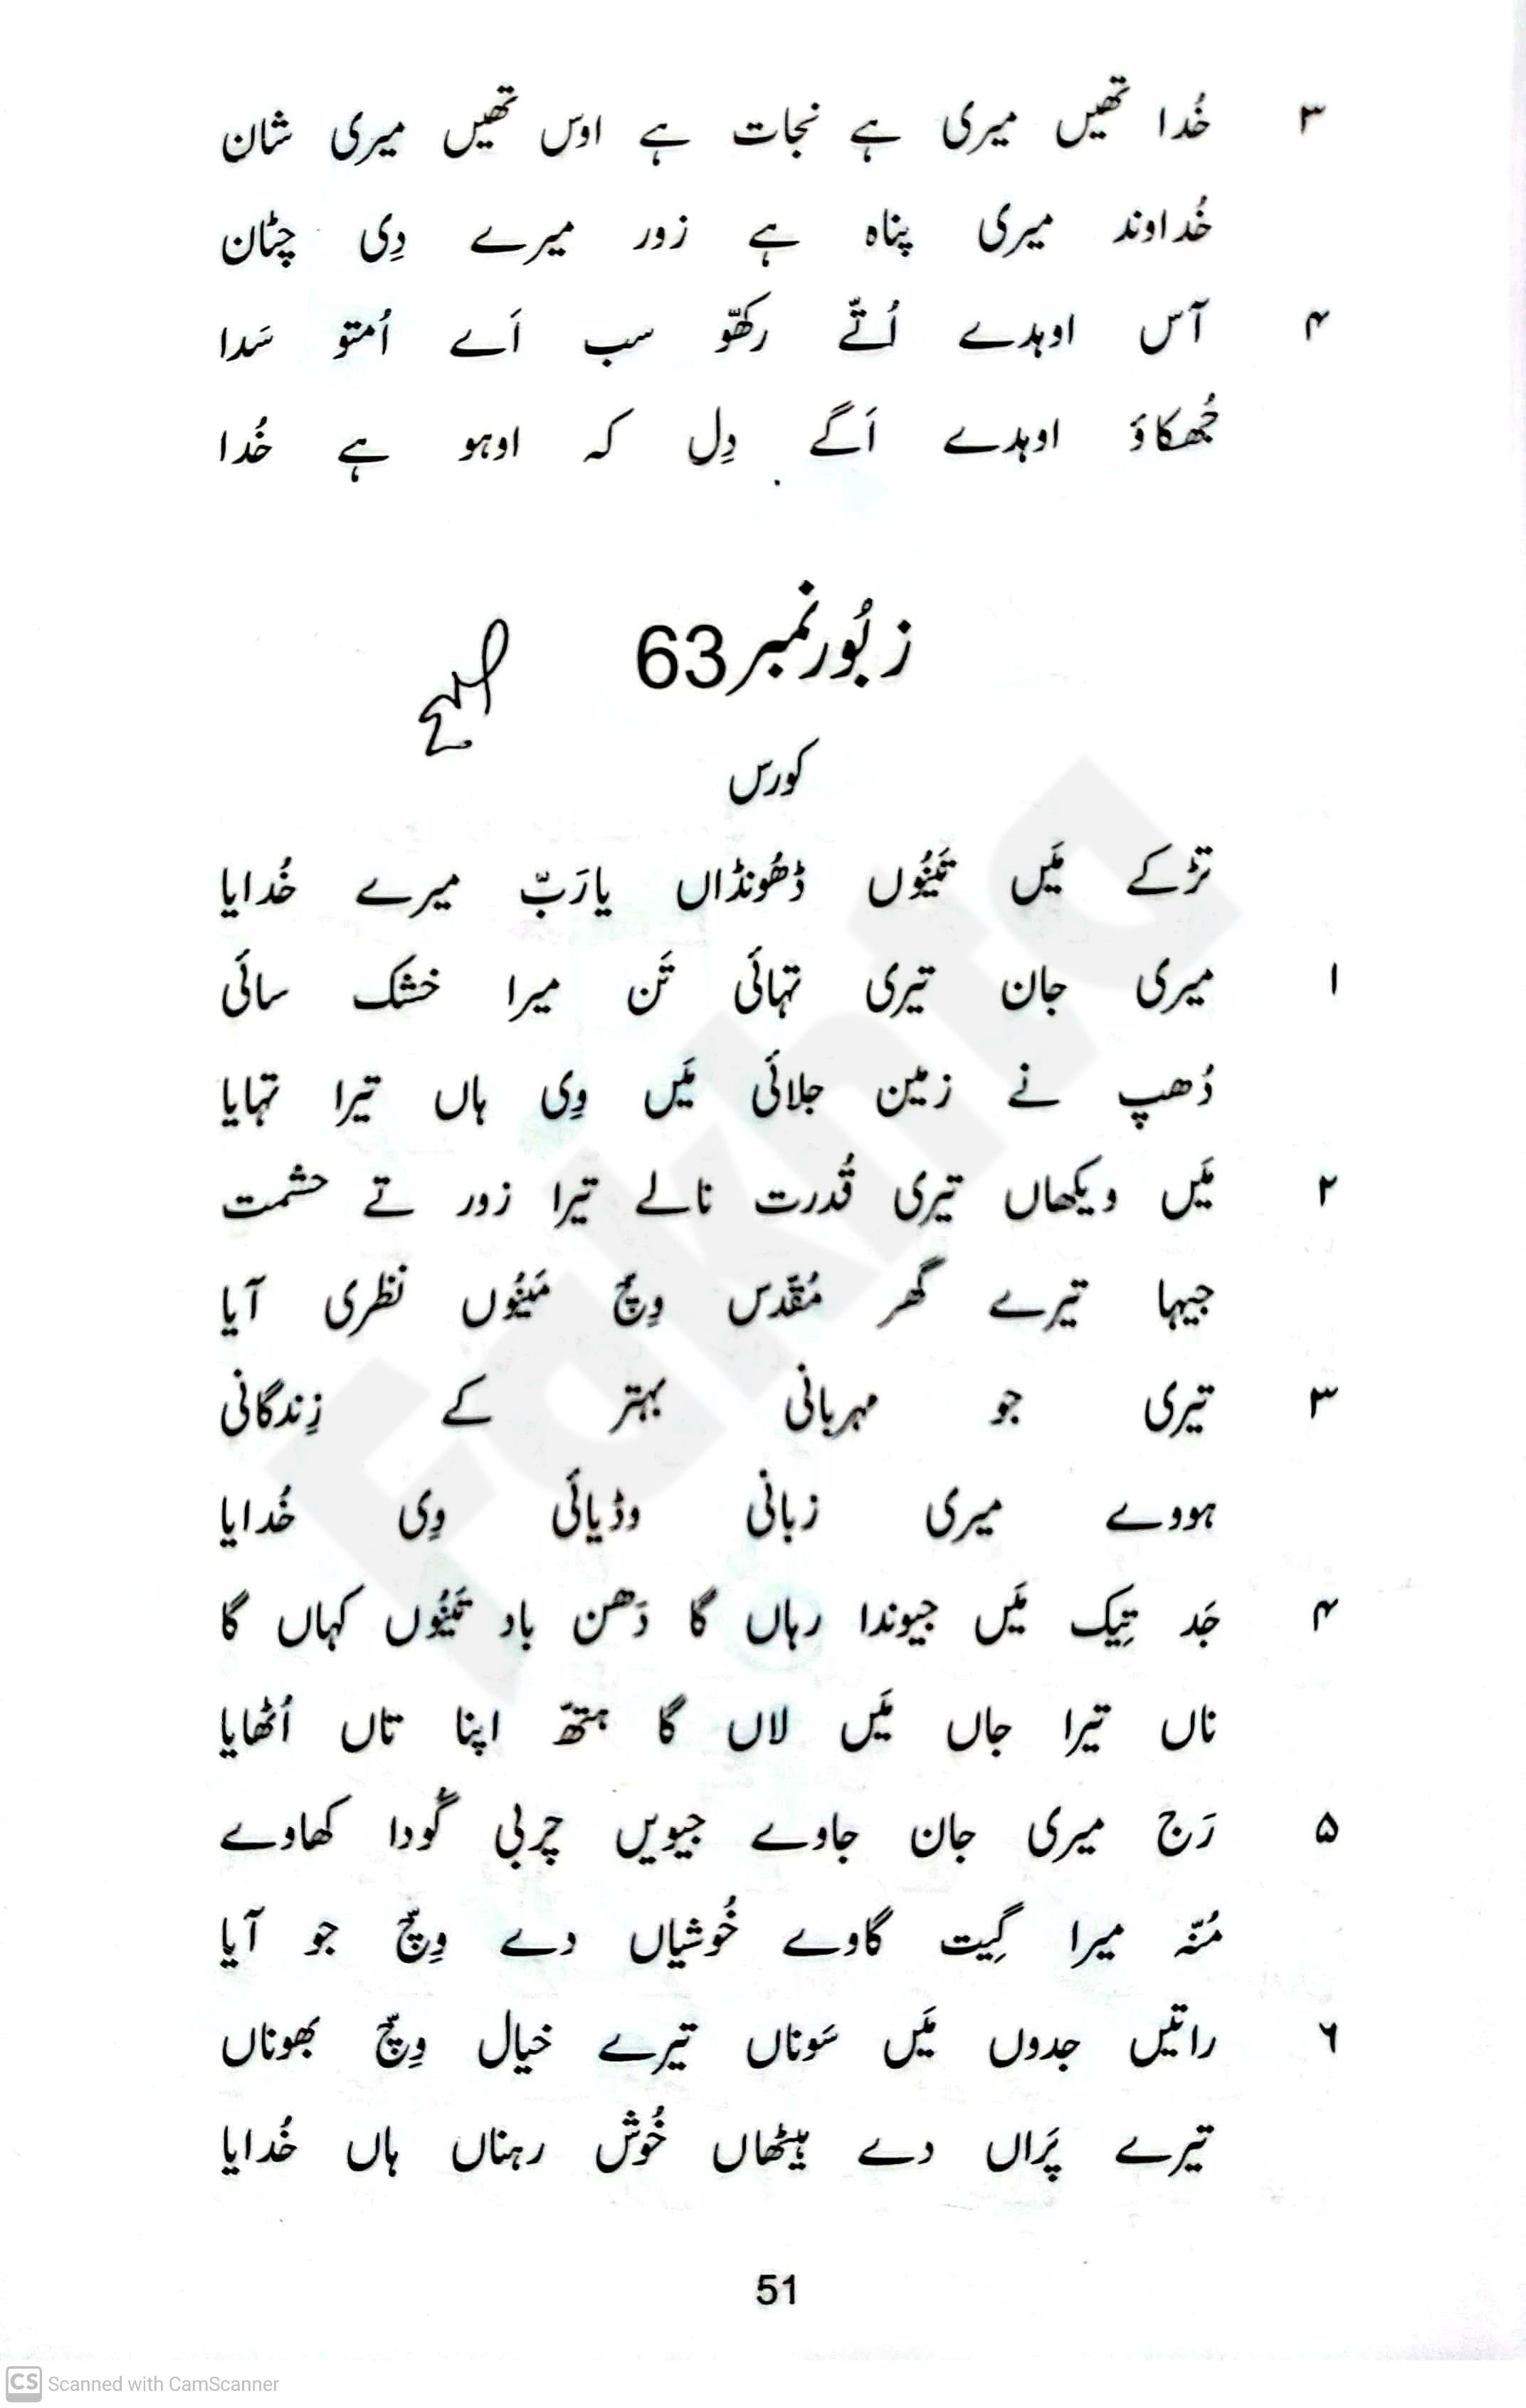 ۳ خُدا تھیں میری ہے نجات ہے اوس تھیں میری شان
خُداوند میری پناہ ہے زور میرے دِی چٹان
۴ آس اوہدے اُتّے رکھّو سب اَے اُمتو سَدا
جُھکاؤ اوہدے اَگے دِل کہ اوہو ہے خُدا
زبُور نمبر 63
کورس
تڑکے مَیں تَینُوں ڈھُونڈاں یارَبّ میرے خُدایا
۱ میری جان تیری تہائی تَن میرا خشک سائی
دُھپ نے زمین جلائی مَیں وِی ہاں تیرا تہایا
۲ مَیں ویکھاں تیری قُدرت نالے تیرا زور تے حشمت
جیہا تیرے گھر مُقدّس وِچّ مَینُوں نظری آیا
۳ تیری جو مہربانی بہتر کے زِندگانی
ہووے میری زبانی وڈیائی وِی خُدایا
۴ جَد تِیک مَیں جیوندا رہاں گا دَھن باد تَینُوں کہاں گا
ناں تیرا جاں مَیں لاں گا ہتھّ اپنا تاں اُٹھایا
۵ رَج میری جان جاوے جیویں چربی گُودا کھاوے
مُنّہ میرا گِیت گاوے خُوشیاں دے وِچّ جو آیا
۶ راتیں جدوں مَیں سَوناں تیرے خیال وِچّ بھوناں
تیرے پَراں دے ہیٹھاں خُوش رہناں ہاں خُدایا
51
Fakhta
CS Scanned with CamScanner